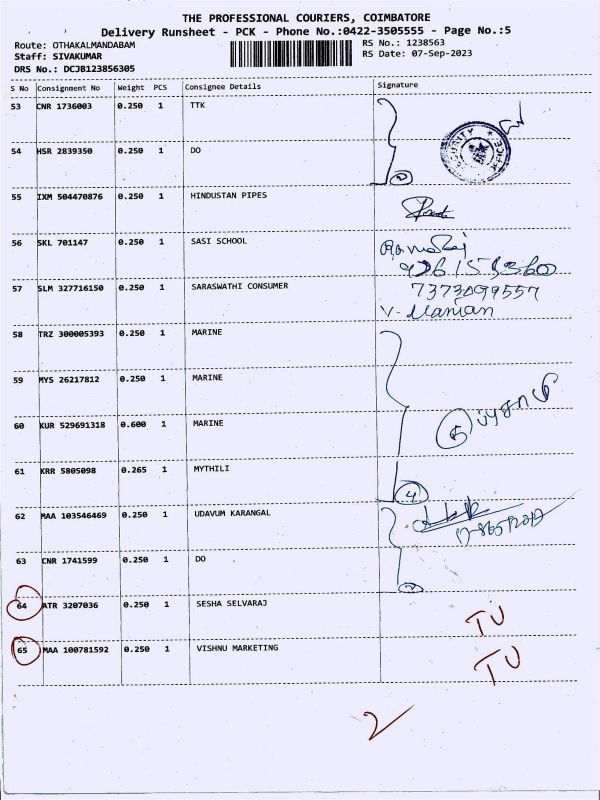 THE PROFESSIONAL COURIERS, COIMBATORE
Delivery Runsheet - PCK - Phone No.:0422-3505555 - Page No.:5
Route: OTHAKALMANDABAM RS No.: 1238563
Staff: SIVAKUMAR RS Date: 07-Sep-2023
DRS No.: DCJB123856305
S No Consignment No Weight PCS Consignee Details Signature
53 CNR 1736003 0.250 1 TTK
54 HSR 2839350 0.250 1 DO 2
55 IXM 504470876 0.250 1 HINDUSTAN PIPES
56 SKL 701147 0.250 1 SASI SCHOOL
57 SLM 327716150 0.250 1 SARASWATHI CONSUMER 7373099557
V. Manian
58 TRZ 300005393 0.250 1 MARINE
59 MYS 26217812 0.250 1 MARINE
60 KUR 529691318 0.600 1 MARINE
61 KRR 5805098 0.265 1 MYTHILI 4
62 MAA 103546469 0.250 1 UDAVUM KARANGAL
63 CNR 1741599 0.250 1 DO 2
64 ATR 3207036 0.250 1 SESHA SELVARAJ TU
65 MAA 100781592 0.250 1 VISHNU MARKETING TU
2